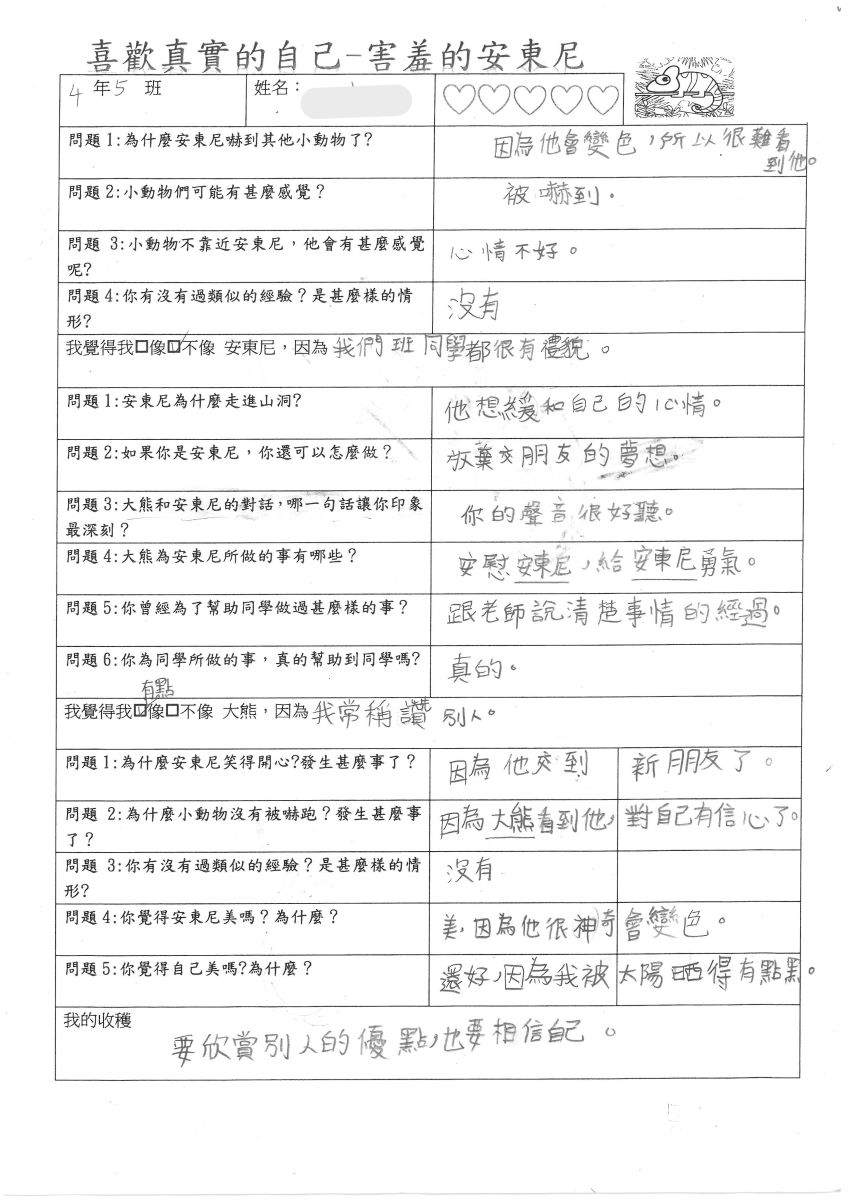 喜歡真實的自己-害羞的安東尼
4 年 5 班 姓名：
問題1:為什麼安東尼嚇到其他小動物了? 因為他會變色，所以很難看
到他。
問題2:小動物們可能有甚麼感覺？ 被嚇到。
問題 3:小動物不靠近安東尼，他會有甚麼感覺 心情不好。
呢?
問題4:你有沒有過類似的經驗？是甚麼樣的情 沒有
形?
我覺得我□像☑不像 安東尼，因為 我們班同學都很有禮貌。
問題1:安東尼為什麼走進山洞? 他想緩和自己的心情。
問題2:如果你是安東尼，你還可以怎麼做？ 放棄交朋友的夢想。
問題3:大熊和安東尼的對話，哪一句話讓你印象 你的聲音很好聽。
最深刻？
問題4:大熊為安東尼所做的事有哪些？ 安慰安東尼，給安東尼勇氣。
問題5:你曾經為了幫助同學做過甚麼樣的事？ 跟老師說清楚事情的經過。
問題6:你為同學所做的事，真的幫助到同學嗎? 真的。
有點
我覺得我☑像□不像 大熊，因為 我常稱讚別人。
問題1:為什麼安東尼笑得開心?發生甚麼事了？ 因為他交到新朋友了。
問題 2:為什麼小動物沒有被嚇跑？發生甚麼事 因為大熊看到他，對自己有信心了。
了？
問題 3:你有沒有過類似的經驗？是甚麼樣的情 沒有
形?
問題4:你覺得安東尼美嗎？為什麼？ 美，因為他很神奇會變色。
問題5:你覺得自己美嗎?為什麼？ 還好，因為我被太陽晒得有點黑。
我的收穫
要欣賞別人的優點，也要相信自己。